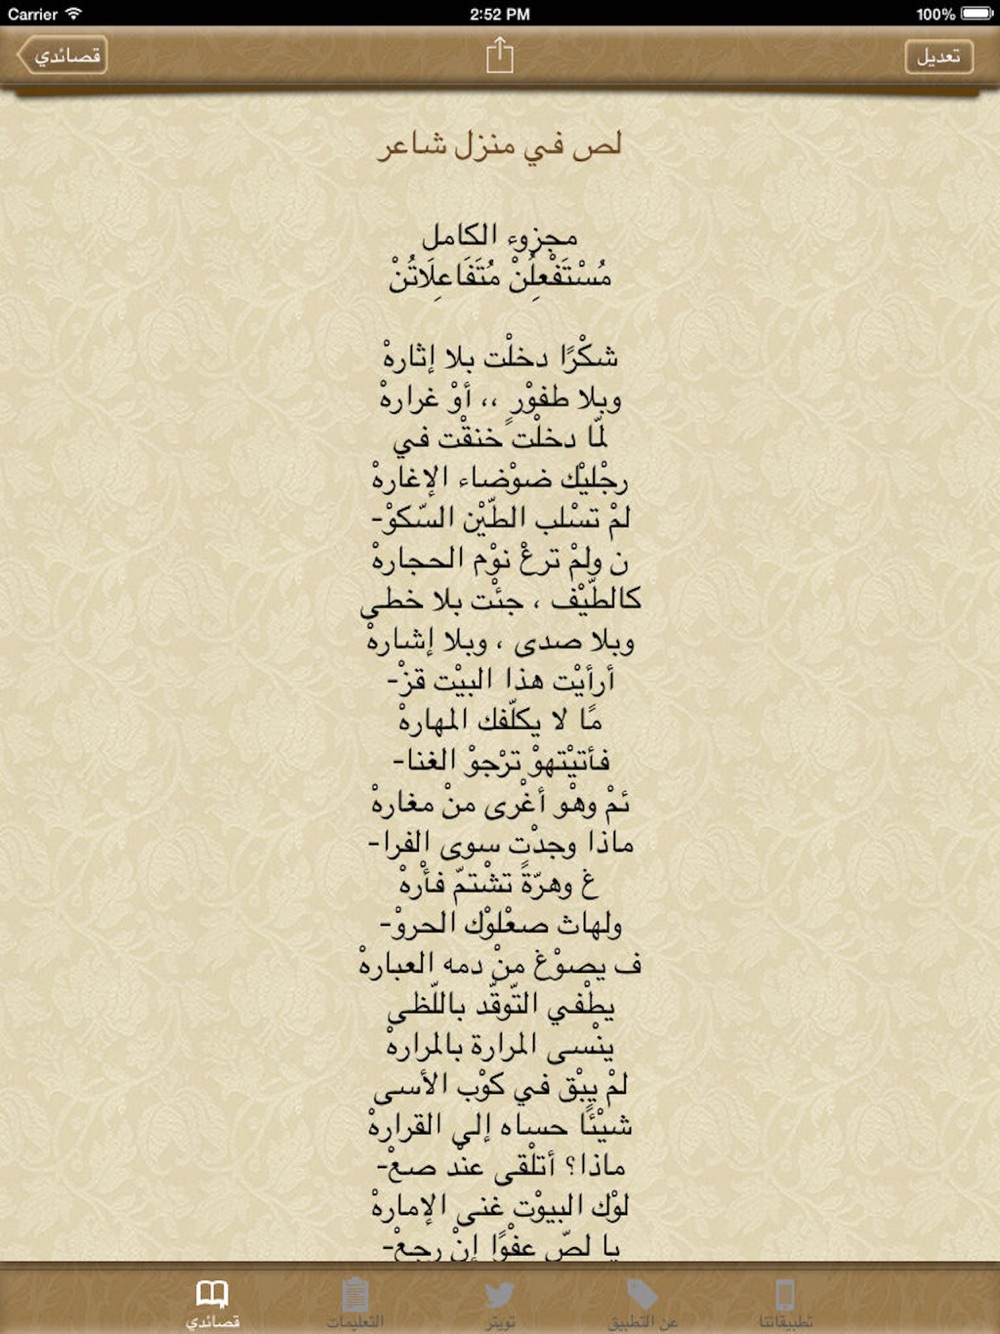 Carrier 2:52 PM 100%
قصائدي تعديل
لص في منزل شاعر
مجزوء الكامل
مُسْتَفْعِلُنْ مُتَفَاعِلَاتُنْ
شكْرًا دخلْت بلا إثارهْ
وبلا طفوْرٍ ،، أوْ غرارهْ
لمّا دخلْت خنقْت في
رجْليْك ضوْضاء الإغارهْ
لمْ تسْلب الطّيْن السّكوْ-
ن ولمْ ترعْ نوْم الحجارهْ
كالطّيْف ، جئْت بلا خطى
وبلا صدى ، وبلا إشارهْ
أرأيْت هذا البيْت قزْ-
مًا لا يكلّفك المهارهْ
فأتيْتهوْ ترْجوْ الغنا-
ئمْ وهْو أعْرى منْ مغارهْ
ماذا وجدْت سوى الفرا-
غ وهرّةً تشْتمّ فأْرهْ
ولهاث صعْلوْك الحروْ-
ف يصوْغ منْ دمه العبارهْ
يطْفي التّوقّد باللّظى
ينْسى المرارة بالمرارهْ
لمْ يبْق في كوْب الأسى
شيْئًا حساه إلى القرارهْ
ماذا؟ أتلْقى عنْد صعْ-
لوْك البيوْت غنى الإمارهْ
يا لصّ عفْوًا إنْ رجعْ-
قصائدي التعليمات تويتر عن التطبيق تطبيقاتنا